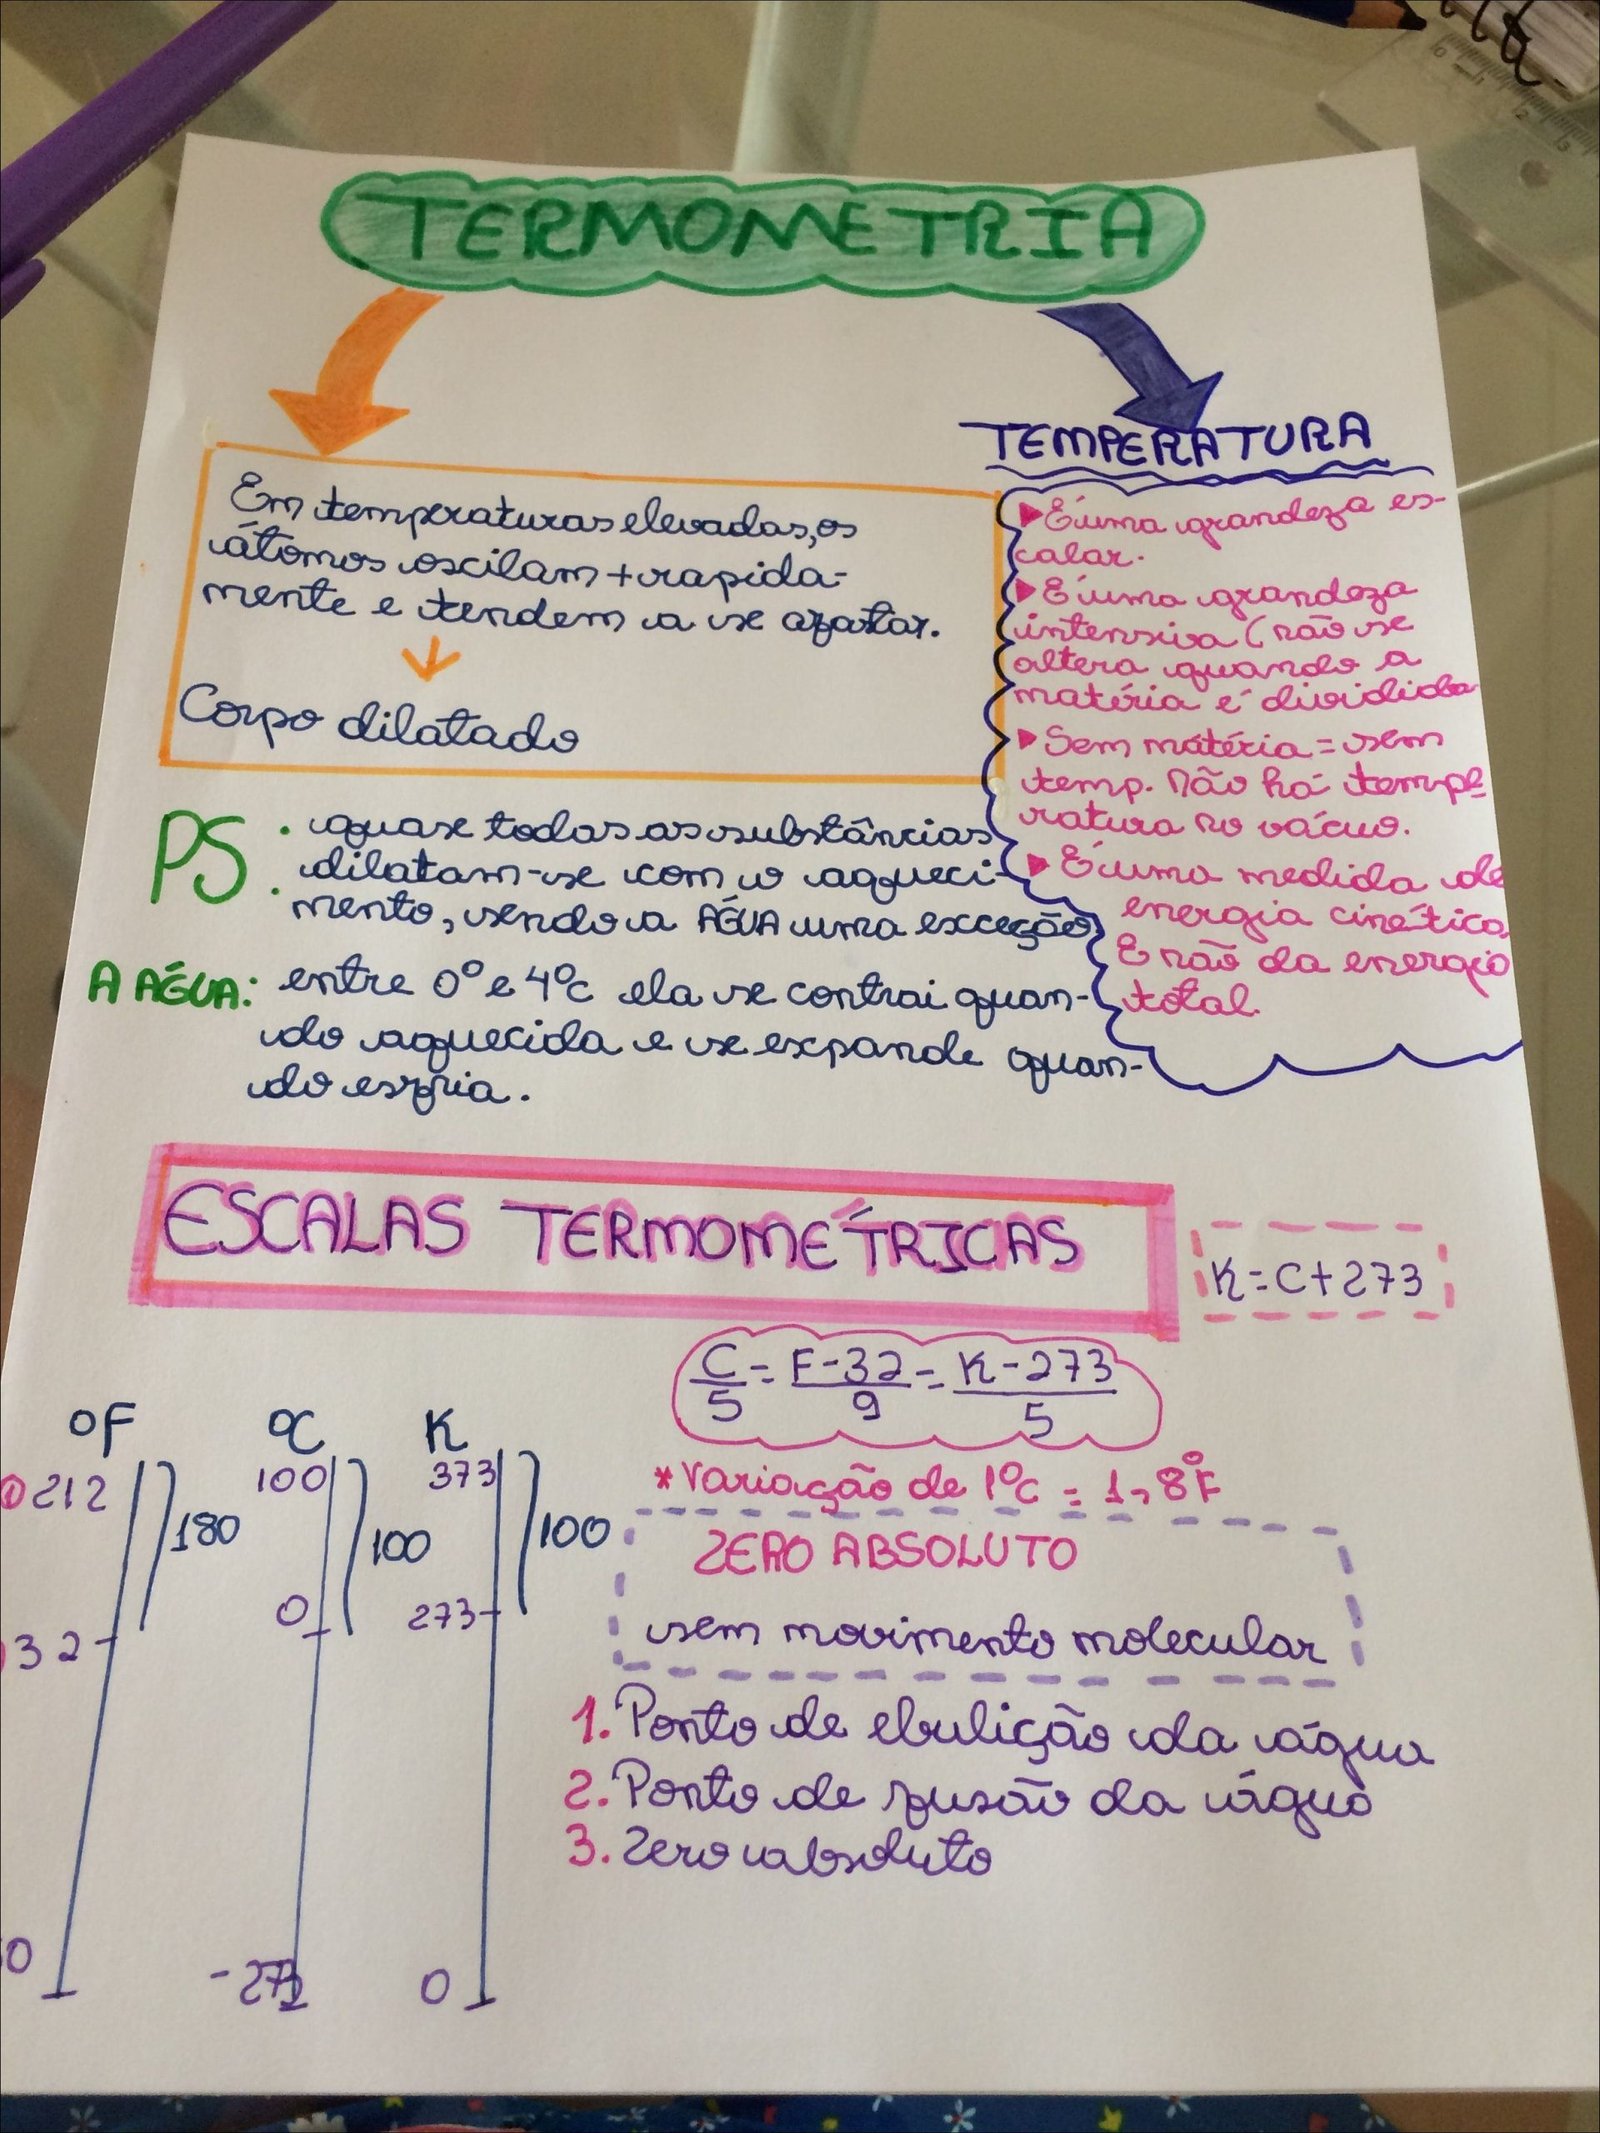 TERMOMETRIA
Em temperaturas elevadas, os
átomos oscilam + rapida-
mente e tendem a se afastar.
Corpo dilatado
TEMPERATURA
É uma grandeza es-
calar.
É uma grandeza
intensiva (não se
altera quando a
matéria é dividida
Sem matéria = sem
temp. Não há tempe
ratura no vácuo.
É uma medida de
energia cinética,
E não da energia
total.
PS: quase todas as substâncias
dilatam-se com o aqueci-
mento, sendo a ÁGUA uma exceção
A ÁGUA: entre 0° e 4°C ela se contrai quan-
do aquecida e se expande quan-
do esfria.
ESCALAS TERMOMÉTRICAS
K = C + 273
C/5 = F - 32/9 = K - 273/5
°F °C K
212 180 100 100 373 100
32 0 273
0 -273 0
*Variação de 1°C = 1,8°F
ZERO ABSOLUTO
sem movimento molecular
1. Ponto de ebulição da água
2. Ponto de fusão da água
3. Zero absoluto